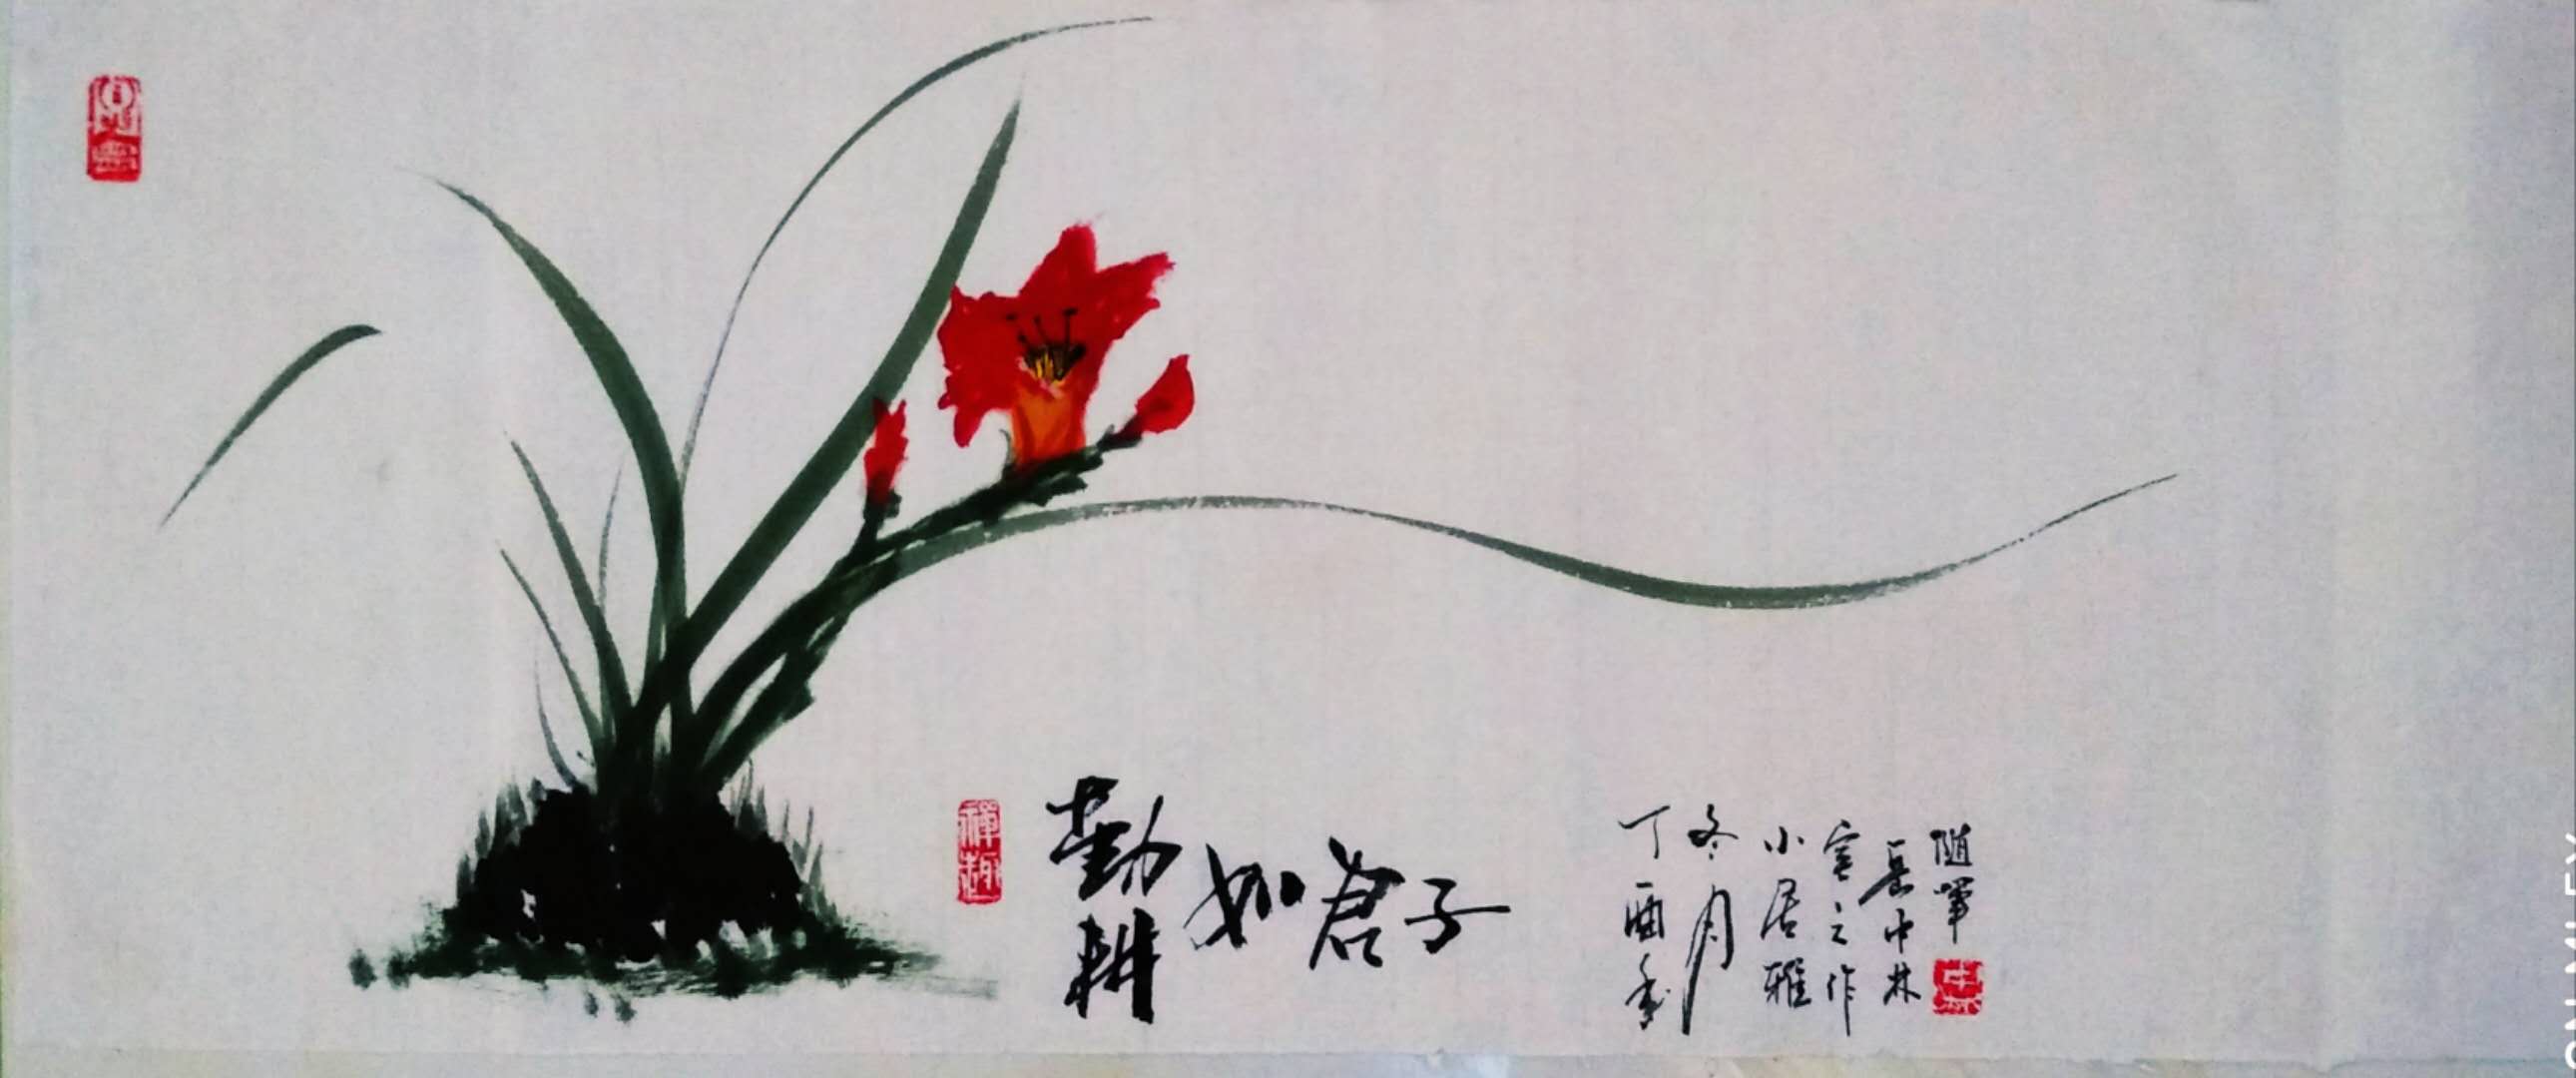 勤耕
如君子
丁酉年
冬月
小居雅
室之作
岳中林
随笔
禅趣